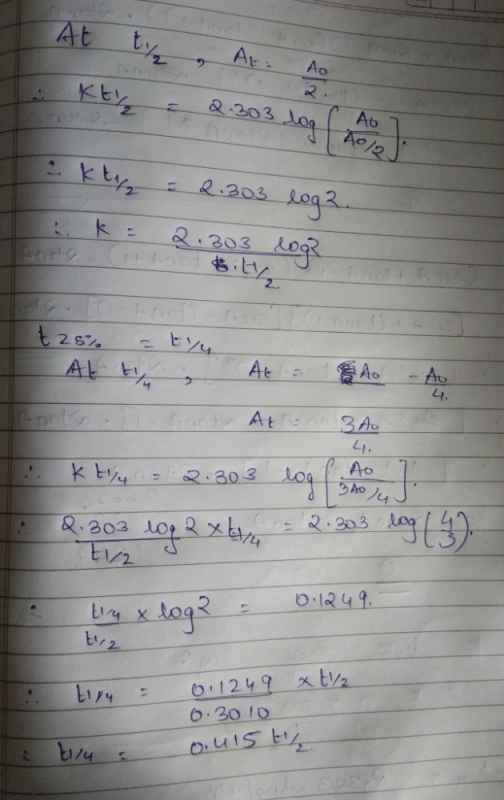 At t1/2 , At = A0/2.
∴ Kt1/2 = 2.303 log [A0/A0/2].
∴ Kt1/2 = 2.303 log2.
∴ K = 2.303 log2 / t1/2.
t25% = t1/4
At t1/4 , At = A0 - A0/4.
At = 3A0/4.
∴ Kt1/4 = 2.303 log [A0/3A0/4].
∴ 2.303 log2/t1/2 × t1/4 = 2.303 log (4/3).
∴ t1/4/t1/2 × log2 = 0.1249.
∴ t1/4 = 0.1249/0.3010 × t1/2
∴ t1/4 = 0.415 t1/2.